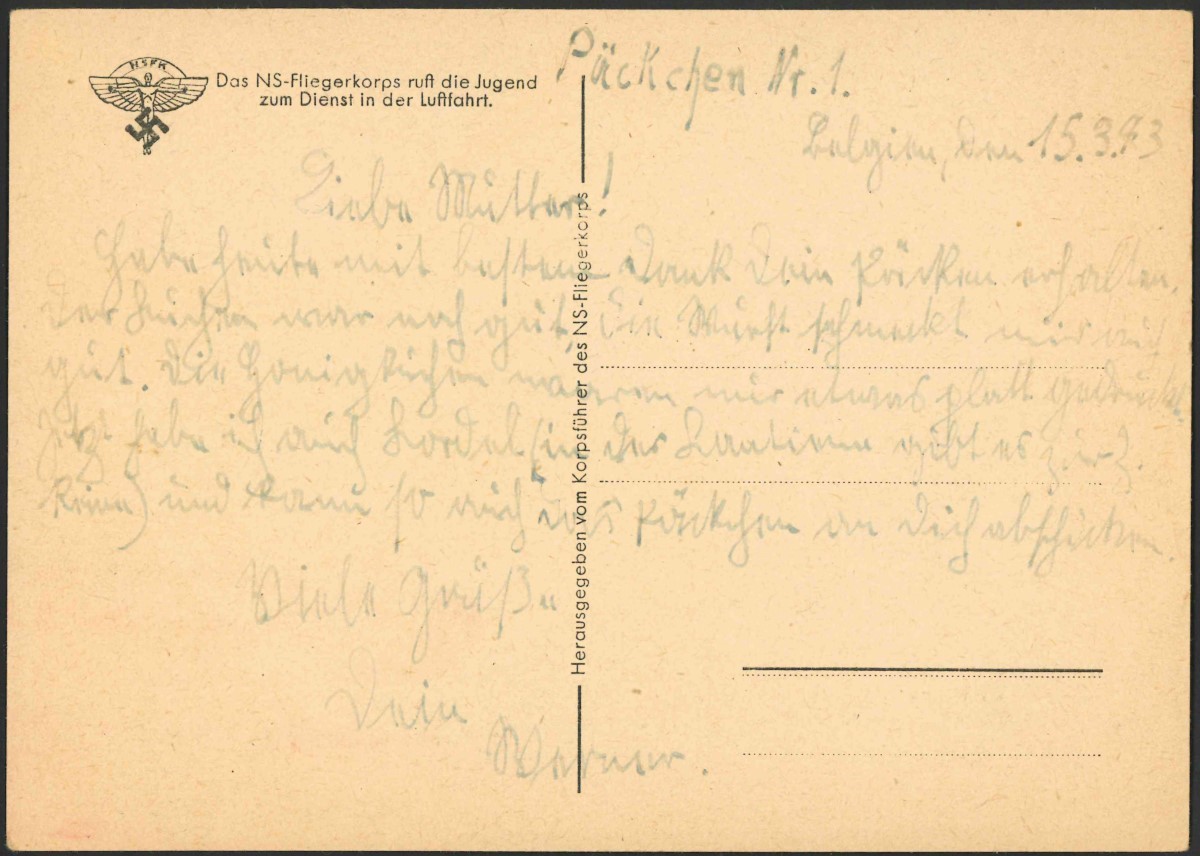 NSFK
Das NS-Fliegerkorps ruft die Jugend
zum Dienst in der Luftfahrt.
Päckchen Nr. 1.
Belgien, den 15.3.43
Liebe Mutter!
Habe heute mit bestem Dank Dein Päcken erhalten.
Der Kuchen war noch gut, die Wurst schmeckt mir auch
gut. Die Honigkuchen waren nur etwas platt gedrückt.
Jetzt habe ich auch Kordel (in der Kantiene gibt es z.Z.
keine) und kann so auch das Päckchen an Dich abschicken.
Viele Grüße
Dein
Werner.
Herausgegeben vom Korpsführer des NS-Fliegerkorps